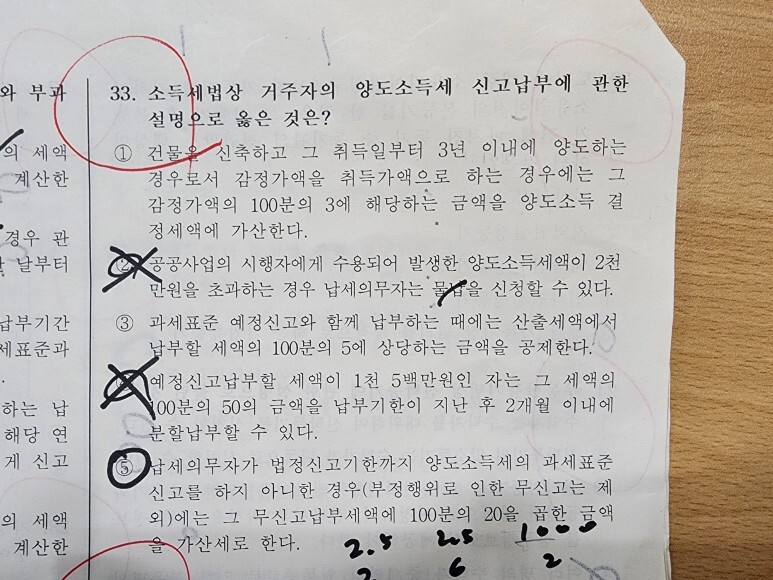 와 부과
의 세액
계산한
경우 관
날부터
납부기간
세표준과
하는 납
해당 연
게 신고
의 세액
계산한
33. 소득세법상 거주자의 양도소득세 신고납부에 관한
설명으로 옳은 것은?
① 건물을 신축하고 그 취득일부터 3년 이내에 양도하는
경우로서 감정가액을 취득가액으로 하는 경우에는 그
감정가액의 100분의 3에 해당하는 금액을 양도소득 결
정세액에 가산한다.
② 공공사업의 시행자에게 수용되어 발생한 양도소득세액이 2천
만원을 초과하는 경우 납세의무자는 물납을 신청할 수 있다.
③ 과세표준 예정신고와 함께 납부하는 때에는 산출세액에서
납부할 세액의 100분의 5에 상당하는 금액을 공제한다.
④ 예정신고납부할 세액이 1천 5백만원인 자는 그 세액의
100분의 50의 금액을 납부기한이 지난 후 2개월 이내에
분할납부할 수 있다.
⑤ 납세의무자가 법정신고기한까지 양도소득세의 과세표준
신고를 하지 아니한 경우(부정행위로 인한 무신고는 제
외)에는 그 무신고납부세액에 100분의 20을 곱한 금액
을 가산세로 한다.
2.5 2.5 1000
2 6 2